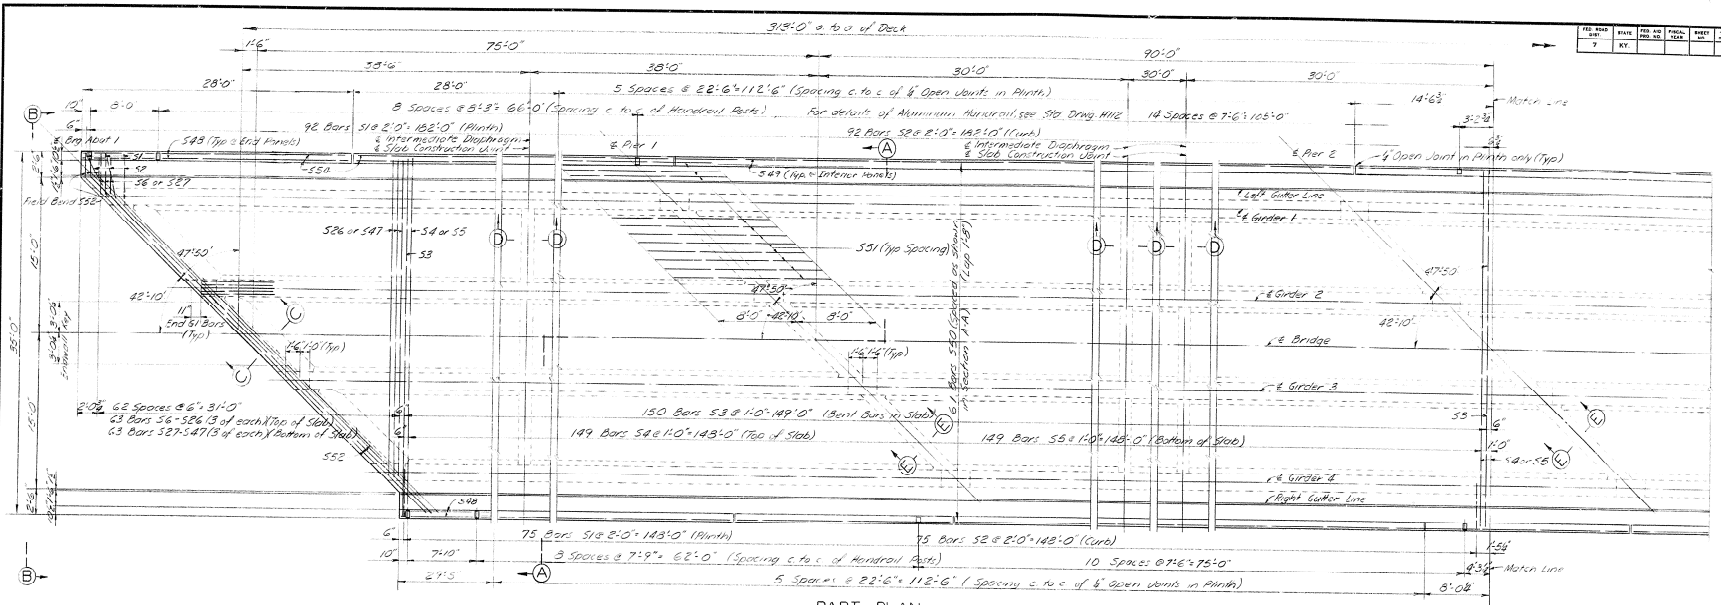 313'-0" o. to o of Deck
FED. ROAD DIST. STATE FED. AID PRO. NO. FISCAL YEAR SHEET NO.
7 KY.
1'-6"
75'-0"
90'-0"
38'-6"
38'-0"
30'-0"
30'-0"
30'-0"
28'-0"
28'-0"
5 Spaces @ 22'-6"=112'-6" (Spacing c. to c of ¼" Open Joints in Plinth)
14'-6¾"
Match Line
10"
8'-0"
8 Spaces @ 8'-3"= 66'-0" (Spacing c. to c. of Handrail Posts)
For details of Aluminum Handrail, see Std. Drwg. H112
14 Spaces @ 7'-6"= 105'-0"
B
6"
92 Bars S1 @ 2'-0"= 182'-0" (Plinth)
92 Bars S2 @ 2'-0"= 182'-0" (Curb)
Brg. Abut 1
S48 (Typ @ End Panels)
℄ Intermediate Diaphragm
℄ Slab Construction Joint
℄ Pier 1
A
℄ Intermediate Diaphragm
℄ Slab Construction Joint
℄ Pier 2
¼" Open Joint in Plinth only (Typ)
S1
S2
S50
S49 (Typ. @ Interior Panels)
S6 or S27
Field Bend S52
Left Gutter Line
℄ Girder 1
S26 or S47
S4 or S5
D
D
D
D
D
S3
S51 (Typ Spacing)
47°-50'
47°-50'
47°-50'
42°-10'
℄ Girder 2
11"
End G1 Bars
(Typ)
C
8'-0"
42°-10'
8'-0"
42°-10'
15'-0"
35'-0"
℄ Bridge
1'-6" 1'-0" (Typ)
1'-6" 1'-6" (Typ)
61 Bars S50 (Spaced as shown
in Section A-A) (Lap 1'-8")
C
℄ Girder 3
62 Spaces @ 6"= 31'-0"
63 Bars S6-S26 (3 of each) (Top of Slab)
63 Bars S27-S47 (3 of each) (Bottom of Slab)
6"
150 Bars S3 @ 1'-0"=149'-0" (Bent Bars in Slab)
E
S3
6"
E
15'-0"
6"
149 Bars S4 @ 1'-0"=148'-0" (Top of Slab)
149 Bars S5 @ 1'-0"=148'-0" (Bottom of Slab)
1'-0"
S52
E
S4 or S5
E
℄ Girder 4
2'-6"
S48
Right Gutter Line
6"
75 Bars S1 @ 2'-0"= 148'-0" (Plinth)
75 Bars S2 @ 2'-0"= 148'-0" (Curb)
10"
7'-10"
8 Spaces @ 7'-9"= 62'-0" (Spacing c. to c. of Handrail Posts)
10 Spaces @ 7'-6"=75'-0"
Match Line
B
A
5 Spaces @ 22'-6"= 112'-6" (Spacing c. to c of ¼" Open Joints in Plinth)
PART PLAN